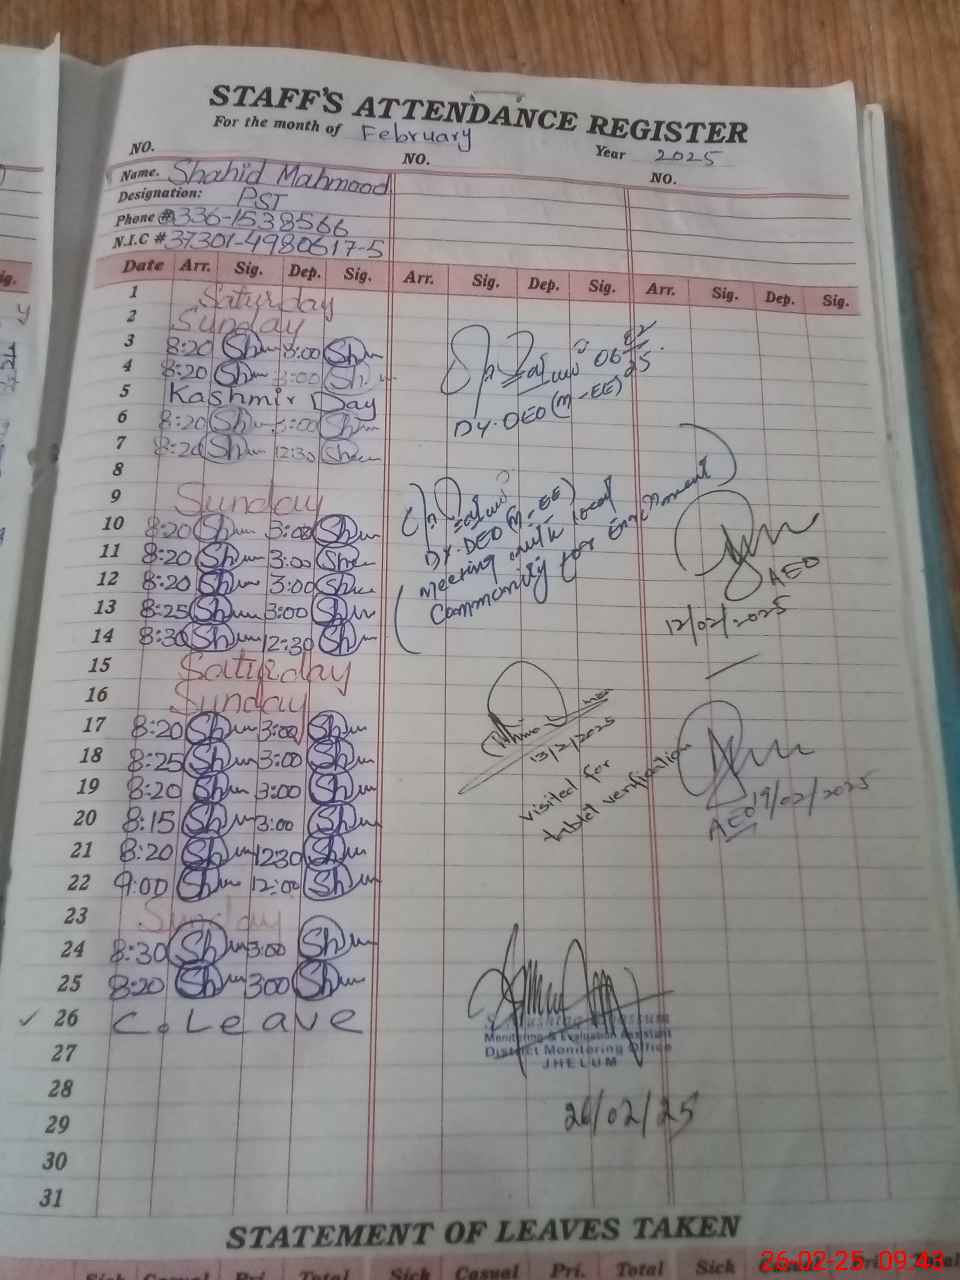 STAFF'S ATTENDANCE REGISTER
For the month of February
Year 2025
NO. NO. NO.
Name. Shahid Mahmood
Designation: PST
Phone # 336-1538566
N.I.C # 37301-4980617-5
Date Arr. Sig. Dep. Sig. Arr. Sig. Dep. Sig. Arr. Sig. Dep. Sig.
1 Saturday
2 Sunday
3 8:20 3:00
4 8:20 3:00
5 Kashmir Day
6 8:20 3:00
7 8:20 12:30
8
9 Sunday
10 8:20 3:00
11 8:20 3:00
12 8:20 3:00
13 8:25 3:00
14 8:30 12:30
15 Saturday
16 Sunday
17 8:20 3:00
18 8:25 3:00
19 8:20 3:00
20 8:15 3:00
21 8:20 12:30
22 9:00 12:00
23 Sunday
24 8:30 3:00
25 8:20 300
26 C. Leave
27
28
29
30
31
06 02 25
DY. DEO (M-EE)
DY. DEO (M-EE)
meeting with local
Community for Enrollment
AEO
12/02/2025
13/2/2025
visited for
tablet verification
AEO 19/02/2025
Monitoring & Evaluation Assistant
District Monitoring Office
JHELUM
26/02/25
STATEMENT OF LEAVES TAKEN
Sick Casual Pri. Total Sick Casual Pri. Total Sick Casual Pri. Total
26-02-25 09:43